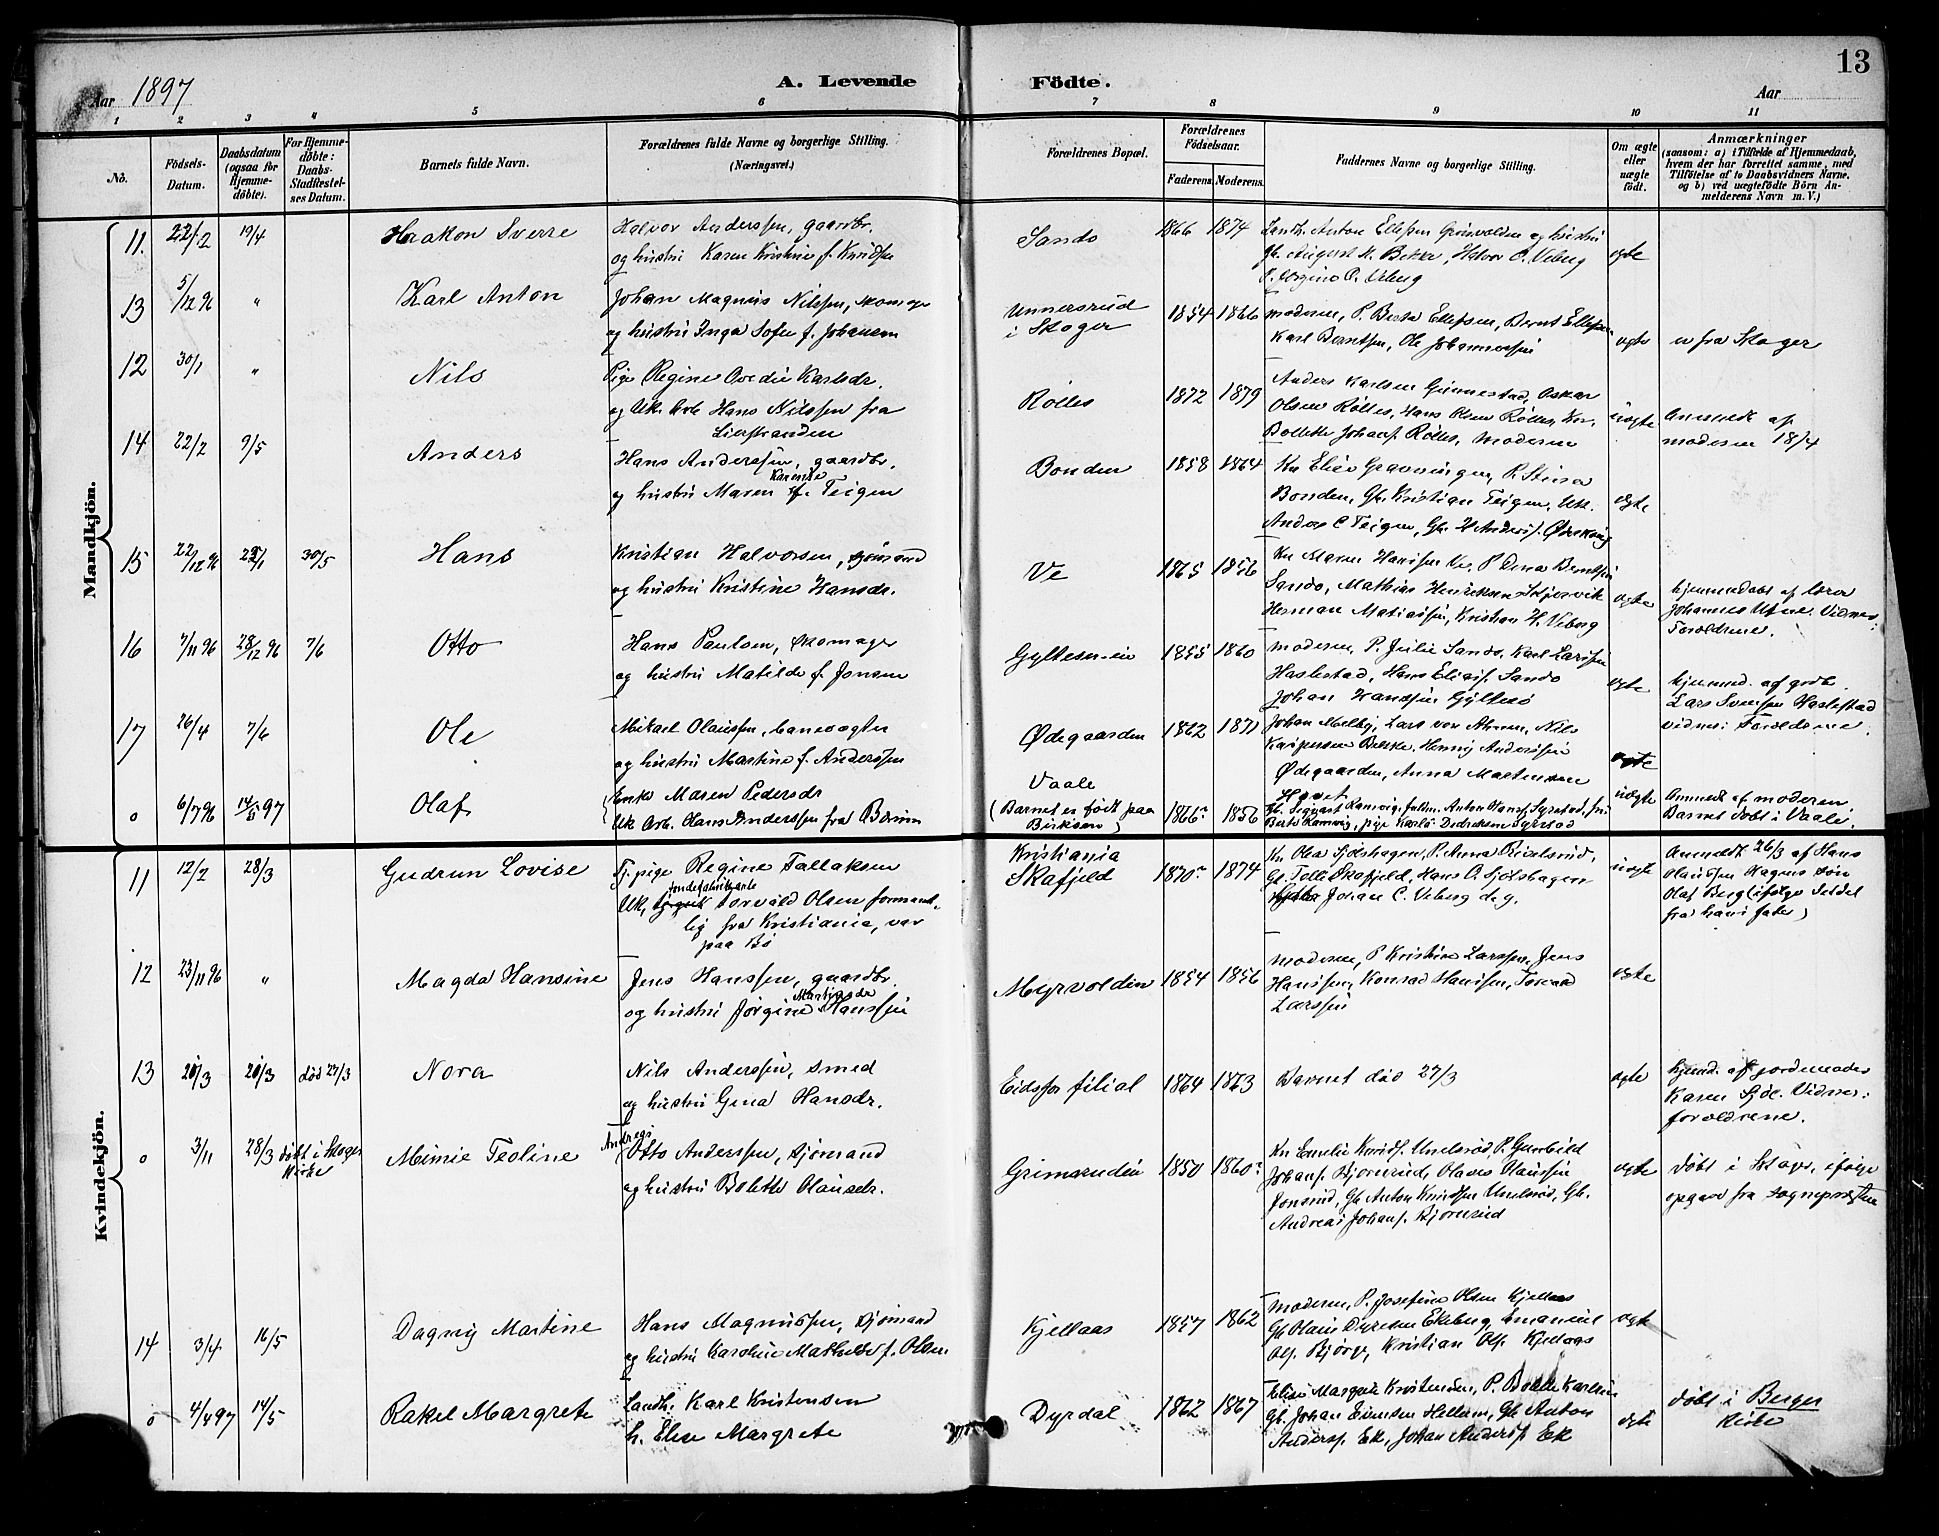 13
Aar 1897
A. Levende
Födte.
Aar
1 2 3 4 5 6 7 8 9 10 11
No.
Födsels-
Datum.
Daabsdatum
(ogsaa for
Hjemme-
döbte).
For Hjemme-
döbte:
Daabs-
Stadfæstel-
ses Datum.
Barnets fulde Navn.
Forældrenes fulde Navne og borgerlige Stilling.
(Næringsvei.)
Forældrenes Bopæl.
Forældrenes
Födselsaar.
Faderens. Moderens.
Faddernes Navne og borgerlige Stilling.
Om ægte
eller
uægte
født.
Anmærkninger
(saasom: a) i Tilfælde af Hjemmedaab,
hvem der har forrettet samme, med
Tilföielse af to Daabsvidners Navne.
og b) ved uægtefödte Börn An-
melderens Navn m. V.)
Mandkjön.
11. 22/12 19/4 Haakon Sverre
Halvor Anderssen, gaardbr.
og hustru Karen Kristine f. Knudsen
Sando 1866 1874
Anton Ellefsen og hustru
August Halvor O. Viberg
P. Viberg
ægte
13 5/12 96 " Karl Anton
Johan Magnus Nilssen, skomager
og hustru Inga Sofie f. Johansen
Unnersrud
i Skoger
1854 1866
moderen, P. Berta Ellefsen, Bernt Ellefsen
Karl Berntsen, Ole Johannessen
ægte
fra Skoger
12 30/1 " Nils
Pige Regine Ovedie Karlsdr.
og Uk. Arb. Hans Nilssen fra
Lierstranden
Rølles 1872 1879
Anders Karlsen Gunnestad, Oskar
Olsen Rølles, Hans Olsen Rølles, Kn.
Bolette Johans. Rølles, moderen
uægte
Anmeldt af
moderen 18/4
14 22/2 9/5 Anders
Hans Anderssen, gaardbr.
og hustru Maren Karense f. Teigen
Bonden 1858 1864
Kn Elise Gravningen, P. Stina
Bonden, Gb. Kristian Teigen, Uk.
Anders C Teigen, Gb. H Anders.
ægte
15 22/12 96 30/5 Hans
Kristian Halvorsen, sjømand
og hustru Kristine Hansdr.
Ve 1865 1856
Kn Maren Hanssen Ve, P Dina Berntsen
Sando, Mathias Henriksen Skjervik
Herman Matiassen, Kristian H. Viberg
ægte
hjemmedøbt af lærer
Johannes Vidner:
Forældrene.
16 7/11 96 28/12 96 7/6 Otto
Hans Paulsen, skomager
og hustru Matilde f. Jonsen
1855 1860
moderen, P. Julie Sando, Karl Larssen
Haslestad, Hans Eliass. Sando
Johan
ægte
hjemmed. af grdbr.
Lars Svensen Haslestad
vidner: Forældrene.
17 26/4 7/6 Ole
Mikael Olaussen, banevogter
og hustru Martine f. Anderssen
Ødegaarden 1862 1871
Johan Melby, Lars von Ahnen, Nils
Kaspersen Bekke, Henny Anderssen
Ødegaarden, Anna Martinsen
ægte
o 6/7 96 14/5 97 Olaf
Enke Maren Pedersdr
Uk Arb. Hans Anderssen fra
Vaale
(Barnet er født paa
)
1866 1856
Anton
Karla Dedriksen
uægte
Anmeldt af moderen.
Barnet døbt i Vaale.
Kvindekjön.
11 12/2 28/3 Gudrun Lovise
Tj. pige Regine Tallaksen
Uk. Torvald Olsen formand-
lig fra Kristiania, var
paa Bø
Kristiania
Skafjeld
1870 1874
Kn Olea Sjølshagen, P. Anna
Gb. Tolle Skafjeld, Hans O. Sjølshagen
Johan C. Viberg d.y.
uægte
Anmeldt 26/3 af Hans
Olaussen Hagens søn
Olaf Berg (ifølge Seddel
fra hans fader)
12 23/11 96 " Magda Hansine
Jens Hanssen, gaardbr.
og hustru Jørgine Hanssen
Myrvolden 1854 1856
moderen, P Kristine Larssen, Jens
Hanssen, Konrad Hanssen,
Larssen
ægte
13 20/3 20/3 død 27/3 Nora
Nils Anderssen, smed
og hustru Gina Hansdr.
Eidsfos filial 1864 1863
Barnet død 27/3
ægte
hjemd. af jordemoder
Karen Sjøl. Vidner:
forældrene.
o 3/11 28/3 døbt i Skoger
Kirke
Mimie Teoline
Otto Anderssen, sjømand
og hustru Bolette Olausdr.
Grimsrudeie 1850 1860
Kn Emelie P. Gunhild
Johans. Bjørnerud, Olaves Olaussen
Jonsrud, Gb. Anton Knudsen Gb.
Andreas Johans. Bjørnerud
ægte
døbt i Skoger, ifølge
opgave fra sognepræsten
14 3/4 16/5 Dagny Martine
Hans Magnussen, sjømand
og hustru Karoline Mathilde f. Olsen
Kjellaas 1857 1862
moderen, P. Josefine Olsen Kjellaas
Gb. Olaus Ekeberg, Emanuel
Ols. Bjørge, Kristian Ols. Kjellaas
ægte
o 4/4 97 14/5 Rakel Margrete
Landh. Karl Kristensen
h. Elise Margrete
Dyrdal 1862 1867
Elise Margrete Kristensen, P. Bolette Karlsen
Gb. Johan Evensen Hellum, Gb. Anton
Anderss. Ek, Johan Anderss. Ek
ægte
døbt i Berger
Kirke